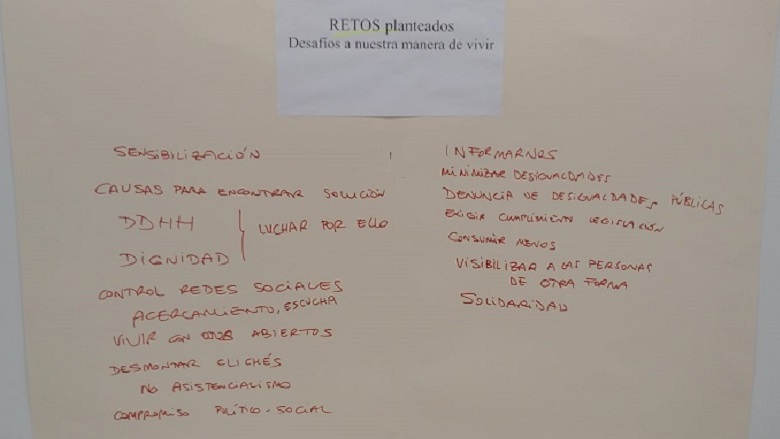 RETOS planteados
Desafíos a nuestra manera de vivir
SENSIBILIZACIÓN
CAUSAS PARA ENCONTRAR SOLUCIÓN
DDHH
DIGNIDAD
LUCHAR POR ELLO
CONTROL REDES SOCIALES
ACERCAMIENTO, ESCUCHA
VIVIR CON OJOS ABIERTOS
DESMONTAR CLICHÉS
NO ASISTENCIALISMO
COMPROMISO POLÍTICO-SOCIAL
INFORMARNOS
MINIMIZAR DESIGUALDADES
DENUNCIA DE DESIGUALDADES PÚBLICAS
EXIGIR CUMPLIMIENTO LEGISLACIÓN
CONSUMIR MENOS
VISIBILIZAR A LAS PERSONAS
DE OTRA FORMA
SOLIDARIDAD